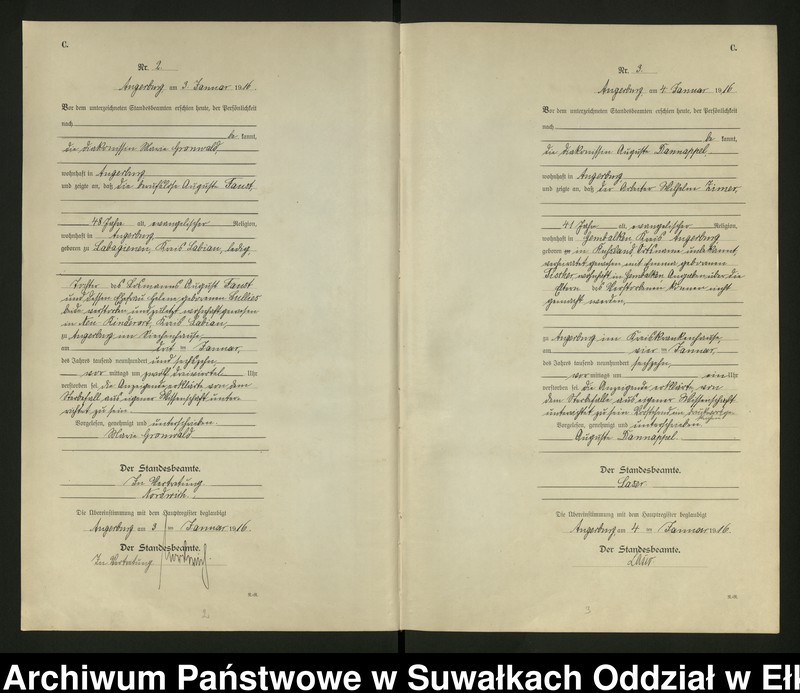 C.
Nr. 2
Angerburg am 3 Januar 1916.
Vor dem unterzeichneten Standesbeamten erschien heute, der Persönlichkeit
nach
be kannt,
die Diakonissin Marie Gronwald,
wohnhaft in Angerburg
und zeigte an, daß die berufslose Auguste Faust,
48 Jahr alt, evangelischer Religion,
wohnhaft in Angerburg
geboren zu Labagienen, Kreis Labian, ledig,
Tochter des August Faust
und dessen Ehefrau geborenen
beide verstorben und zuletzt wohnhaft gewesen
in Neu Rinderort, Kreis Labian,
zu Angerburg im Siechenhause,
am drit ten Januar,
des Jahres tausend neunhundert und sechzehn
vor mittags um zwölf dreiviertel Uhr
verstorben sei, die Anzeigende erklärte von dem
Sterbefall aus eigener Wissenschaft unter
richtet zu sein.
Vorgelesen, genehmigt und unterschrieben.
Marie Gronwald
Der Standesbeamte.
In Vertretung
Die Übereinstimmung mit dem Hauptregister beglaubigt
Angerburg am 3 ten Januar 1916.
Der Standesbeamte.
In Vertretung
2
C.
Nr. 3.
Angerburg am 4. Januar 1916.
Vor dem unterzeichneten Standesbeamten erschien heute, der Persönlichkeit
nach
be kannt,
die Diakonissin Auguste Dannappel
wohnhaft in Angerburg
und zeigte an, daß der Arbeiter Wilhelm Zimer,
41 Jahr alt, evangelischer Religion,
wohnhaft in Gembalken, Kreis Angerburg
geboren in Rußland, Ortsname unbekannt,
verheiratet gewesen mit Emma geborenen
wohnhaft in Gembalken, Angaben über die
Eltern des Verstorbenen können nicht
gemacht werden,
zu Angerburg im Kreiskrankenhause,
am vier ten Januar,
des Jahres tausend neunhundert sechzehn,
vor mittags um ein Uhr
verstorben sei, die Anzeigende erklärte, von
dem Sterbefalle aus eigener Wissenschaft
unterrichtet zu sein. Vorstehend
Vorgelesen, genehmigt und unterschrieben.
Auguste Dannappel
Der Standesbeamte.
Laser
Die Übereinstimmung mit dem Hauptregister beglaubigt
Angerburg, am 4 ten Januar 1916.
Der Standesbeamte.
Laser
3
Archiwum Państwowe w Suwałkach Oddział w Eł